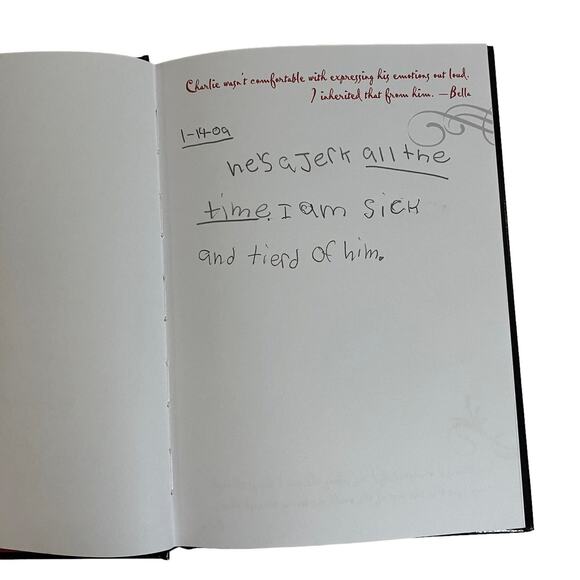 Charlie wasn't comfortable with expressing his emotions out loud.
I inherited that from him. —Bella
1-14-09
he's a Jerk all the
time. I am sick
and tierd of him.